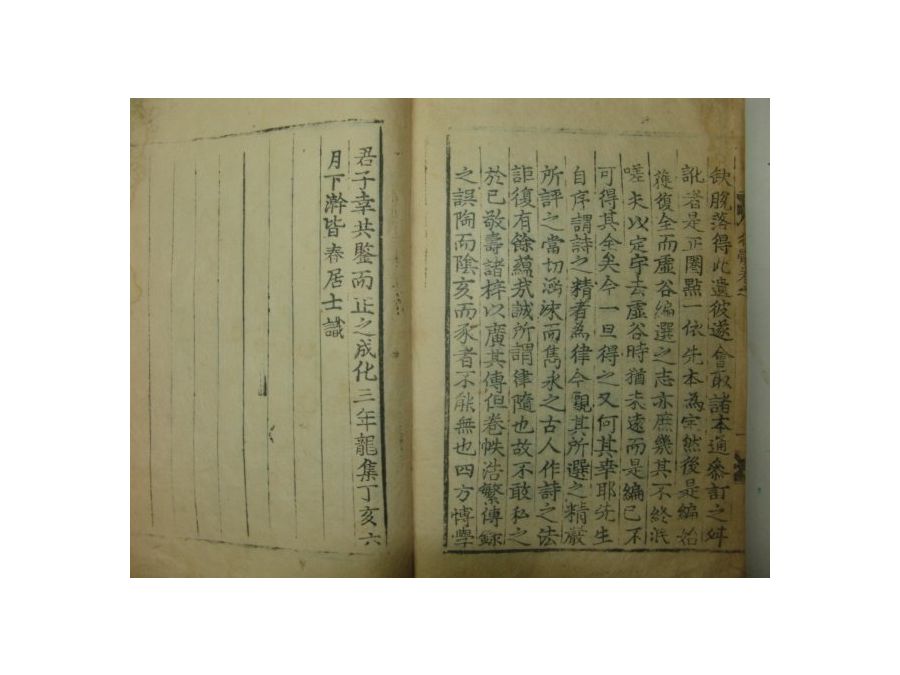 缺脫落得此遺彼遂會取諸本通叅訂之舛
訛者是正圈點一依先本為定然後是編始
獲復全而虛谷編選之志亦庶幾其不終泯
嗟夫以定宇去虛谷時猶未遠而是編已不
可得其全矣今一旦得之又何其幸耶先生
自序謂詩之精者為律今觀其所選之精嚴
所評之當切涵泳而雋永之古人作詩之法
詎復有餘蘊㢤誠所謂律隨也故不敢私之
於已敬壽諸梓以廣其傳但卷帙浩繁傳錄
之誤陶而陰亥而豕者不能無也四方愽學
君子幸共鑒而正之成化三年龍集丁亥六
月下澣皆春居士識